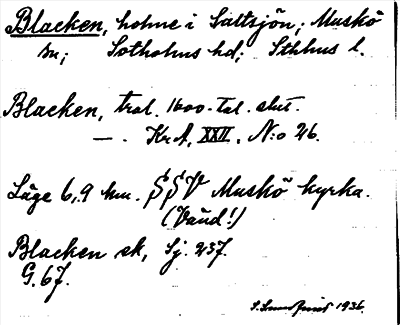 Blacken, holme i Saltsjön; Muskö
sn; Sotholms hd; Sthlms l.
Blacken, trol. 1600-tal. slut.
— . Kr A, XXII, N:o 26.
Läge 6,9 km. SSV Muskö kyrka.
(Vänd!)
Blacken sk, Sj. 237.
G. 67.
1936.